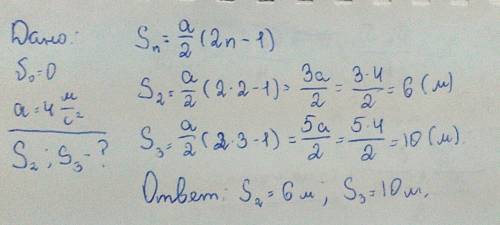 Дано:
S₀=0
a=4 м/с²
S₂; S₃-?
Sₙ= a/2 (2n-1)
S₂= a/2 (2·2-1)= 3a/2 = 3·4/2 = 6 (м)
S₃= a/2 (2·3-1)= 5a/2 = 5·4/2 = 10 (м).
Ответ: S₂=6м; S₃=10м.